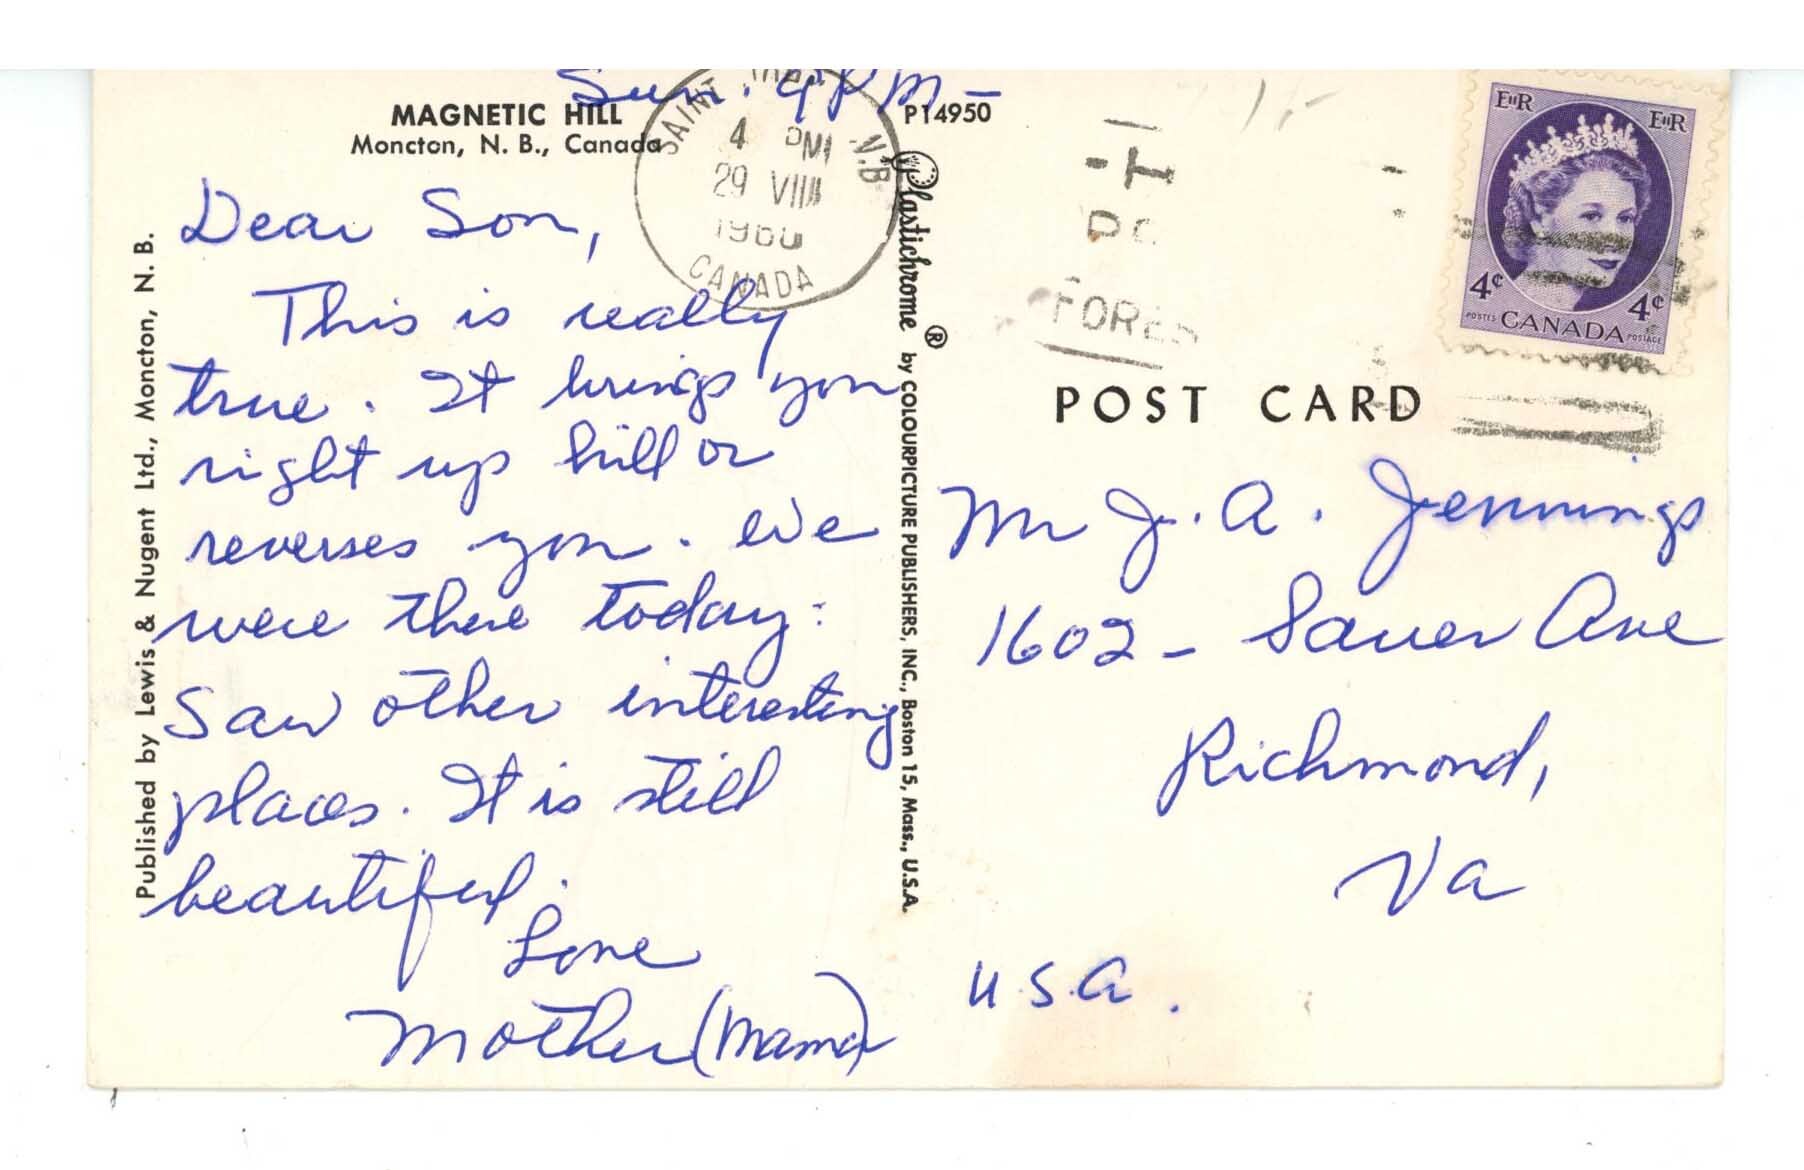 Sun. 9 PM -
MAGNETIC HILL
Moncton, N. B., Canada
P14950
SAINT N.B.
4 PM
29 VIII
1960
CANADA
Dear Son,
This is really
true. It brings you
right up hill or
reverses you. We
were there today:
Saw other interesting
places. It is still
beautiful.
Love
Mother (Mama)
Published by Lewis & Nugent Ltd., Moncton, N. B.
Plastichrome ® by COLOURPICTURE PUBLISHERS, INC., Boston 15, Mass., U.S.A.
EIIR EIIR
4¢ 4¢
POSTES CANADA POSTAGE
POST CARD
Mr J. A. Jennings
1602 - Sauer Ave
Richmond,
Va
U.S.A.